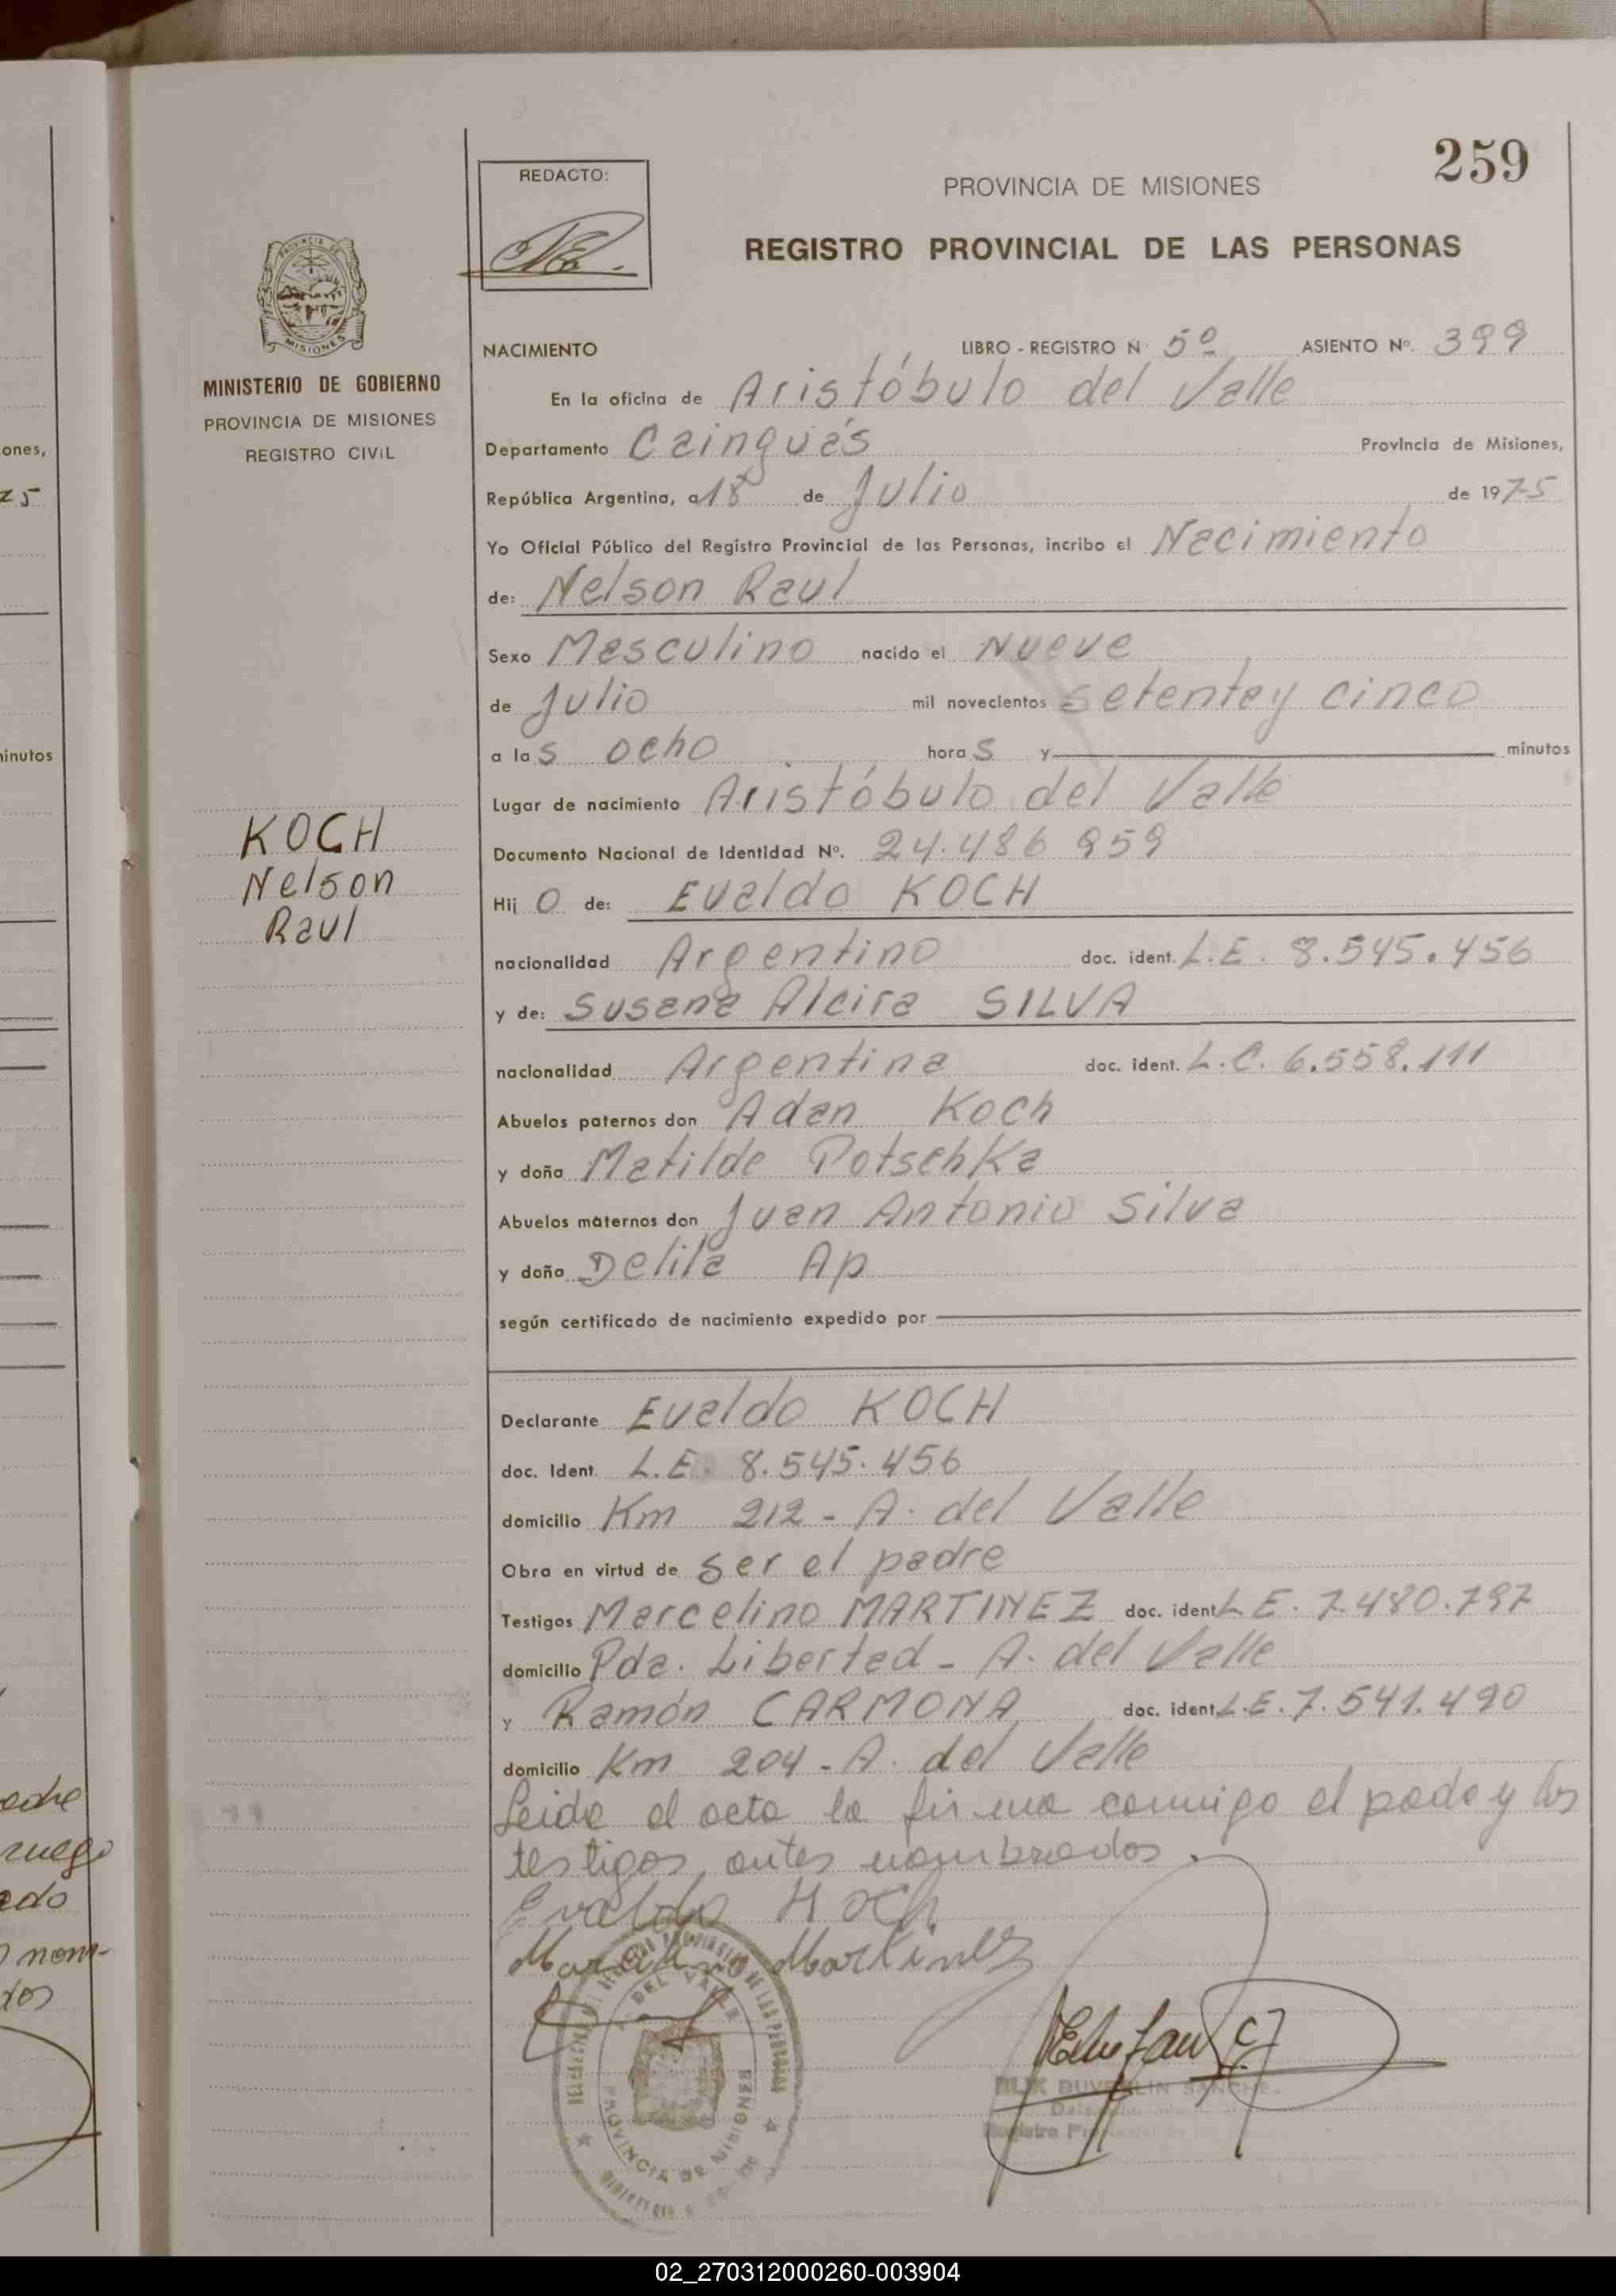 259
REDACTO:
PROVINCIA DE MISIONES
REGISTRO PROVINCIAL DE LAS PERSONAS
PROVINCIA DE
MISIONES
MINISTERIO DE GOBIERNO
PROVINCIA DE MISIONES
REGISTRO CIVIL
NACIMIENTO LIBRO - REGISTRO N 5º ASIENTO Nº. 399
En la oficina de Aristóbulo del Valle
Departamento Cainguás Provincia de Misiones,
República Argentina, a 18 de Julio de 1975
Yo Oficial Público del Registro Provincial de las Personas, incribo el Nacimiento
de: Nelson Raul
Sexo Masculino nacido el Nueve
de Julio mil novecientos setenta y cinco
a las ocho horas y minutos
Lugar de nacimiento Aristóbulo del Valle
Documento Nacional de Identidad Nº. 24.486 959
Hijo de: Evaldo KOCH
nacionalidad Argentino doc. ident. L.E. 8.545.456
y de: Susana Alcira SILVA
nacionalidad Argentina doc. ident. L.C. 6.558.111
Abuelos paternos don Adan Koch
y doña Matilde Potschka
Abuelos maternos don Juan Antonio Silva
y doña Delila Ap
según certificado de nacimiento expedido por
KOCH
Nelson
Raul
Declarante Evaldo KOCH
doc. Ident. L.E. 8.545.456
domicilio Km 212 - A. del Valle
Obra en virtud de ser el padre
Testigos Marcelino MARTINEZ doc. ident. L E. 7.480.797
domicilio Pda. Libertad - A. del Valle
y Ramón CARMONA doc. ident. L.E. 7.541.490
domicilio Km 204 - A. del Valle
Leida el acta la firma conmigo el padre y los
testigos antes nombrados.
Evaldo Koch
Marcelino Martinez
DEL VALLE
PROVINCIA DE MISIONES
ones,
75
minutos
ruego
ado
nom-
dos
02_270312000260-003904